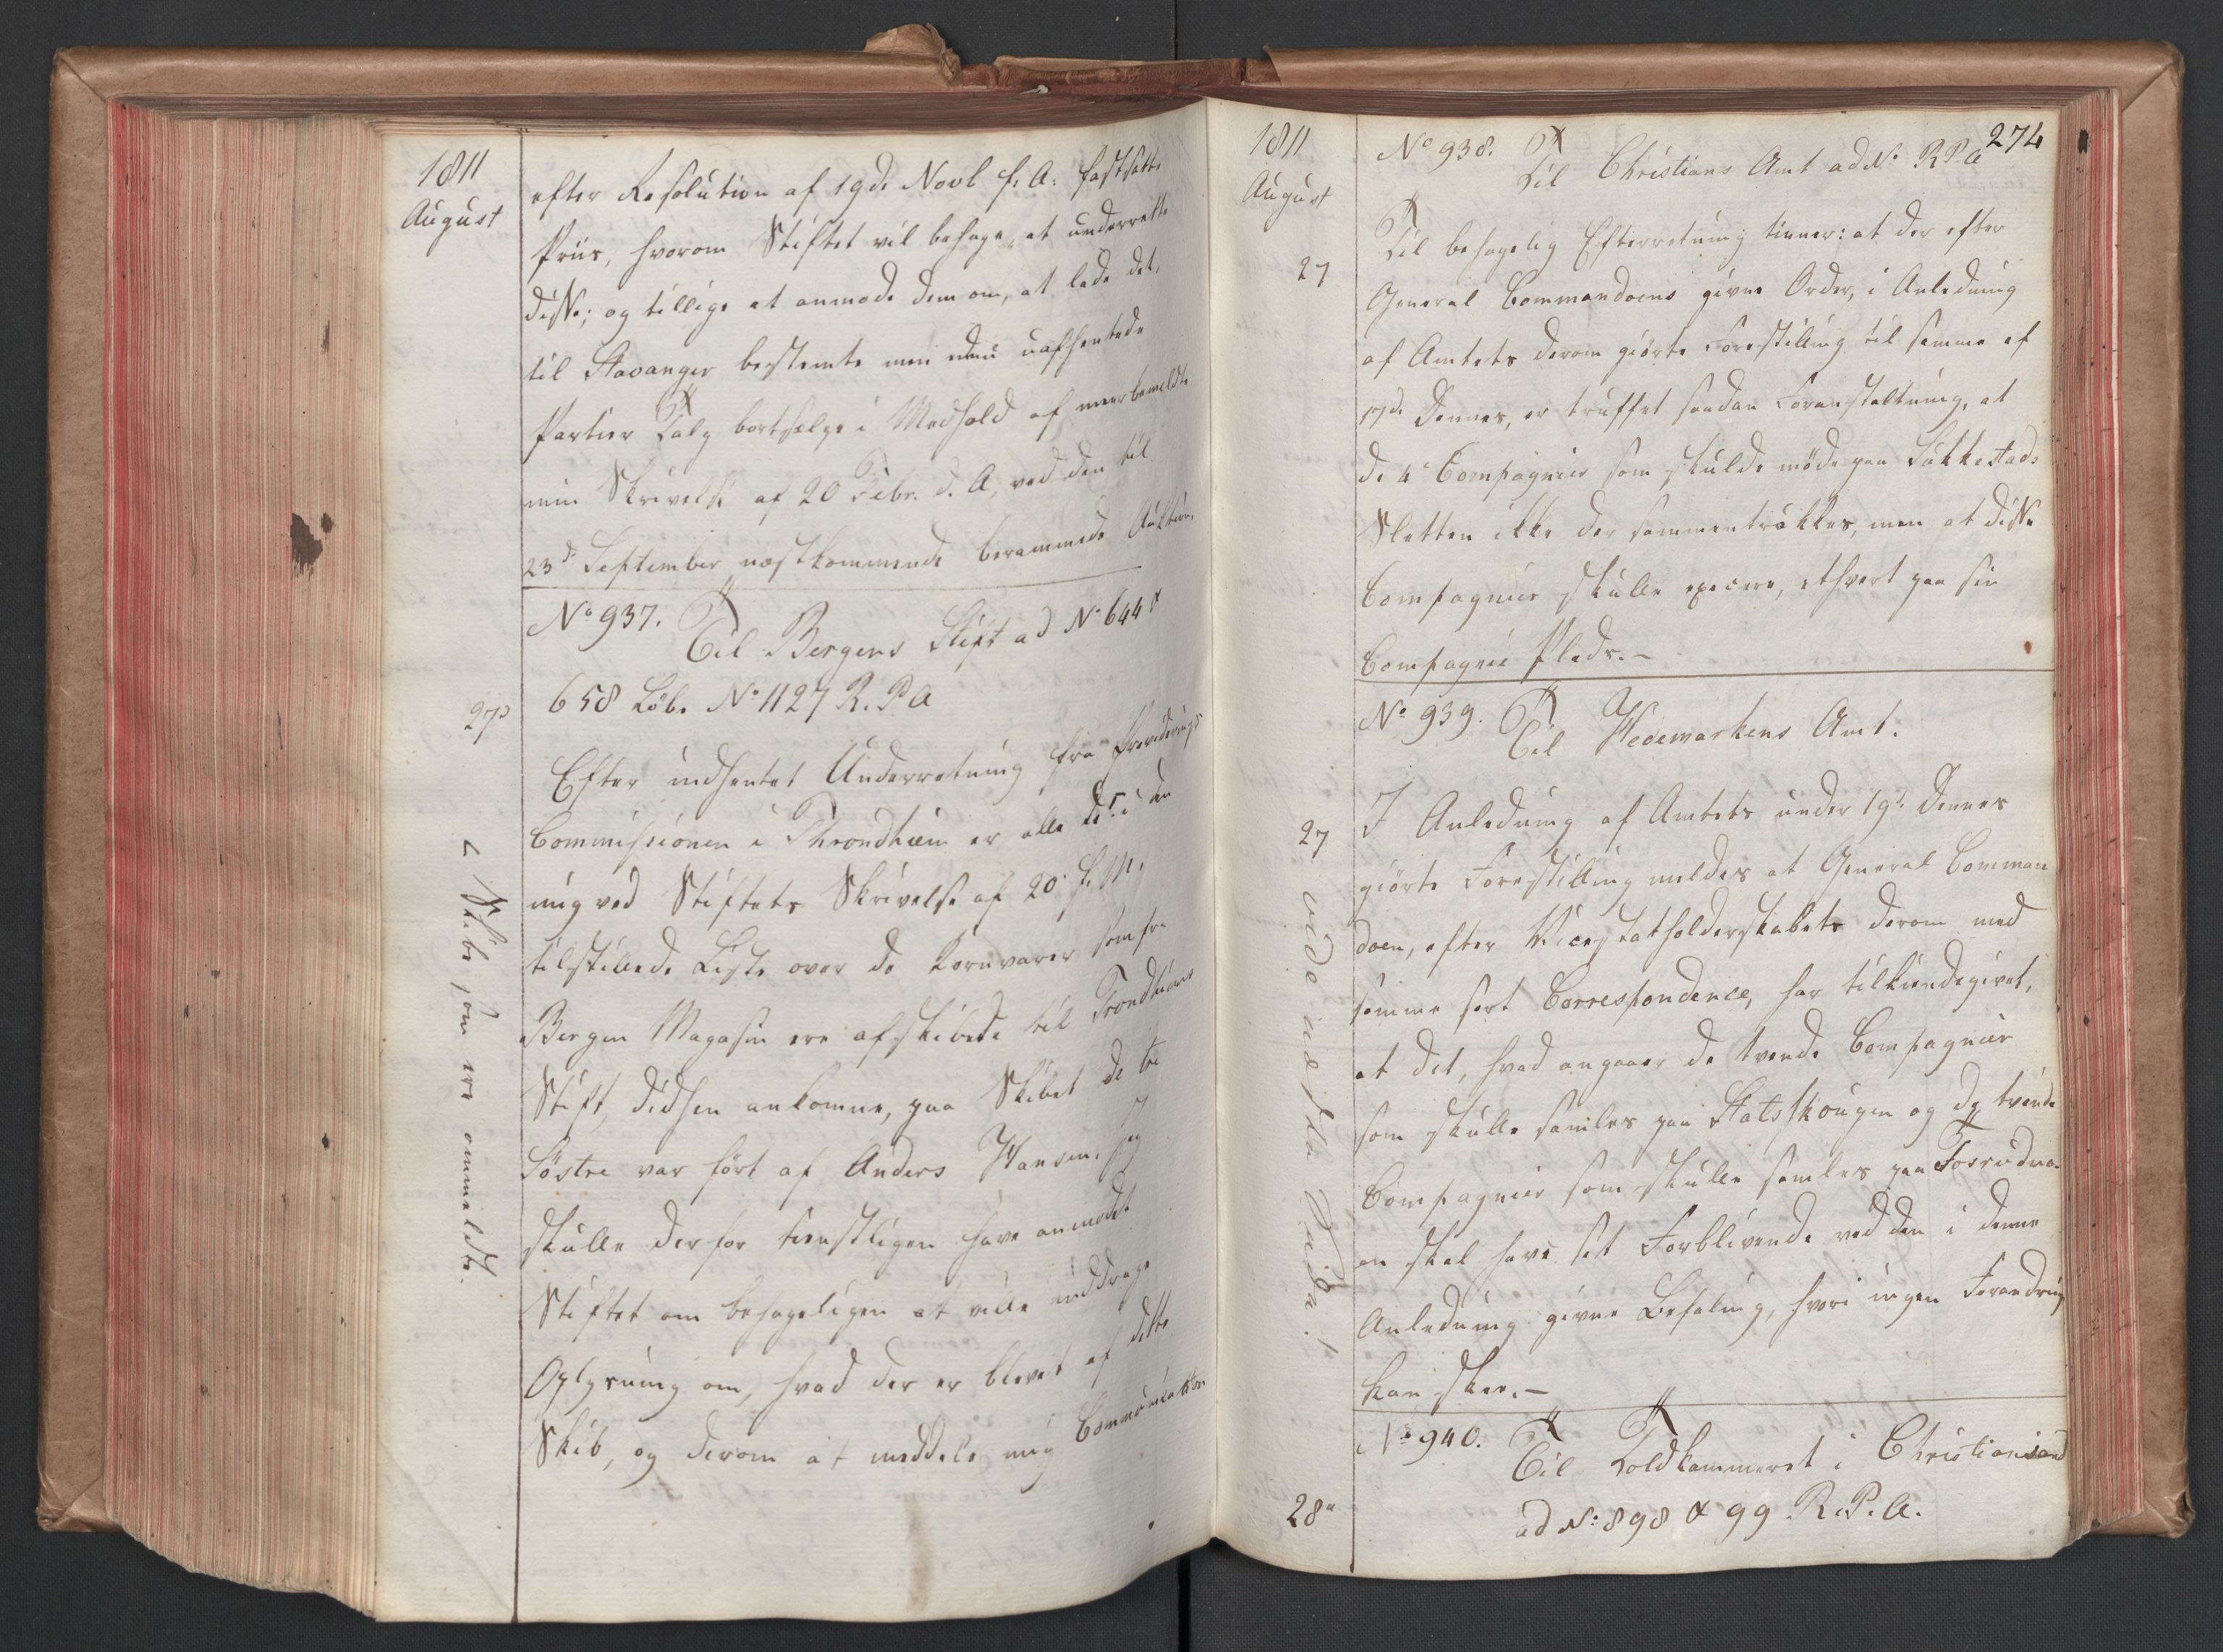 1811
August
efter Resolution af 19de Novb f: A: fastsatte
Priis, hvorom Stiftet vil behage at underrette
disse; og tillige at anmode dem om, at lade det,
til Stavanger bestemte men endnu uafhentede
Partier Talg bortsælge i Medhold af meerbemeldte
min Skrivelse af 20 Febr. d. A, ved den til
23de September næstkommende berammede Auktion.
No 937.
Til Bergens Stift ad No 644 &
27
658 Löb. No 1127 R. P. A
Efter indhentet Underretning fra Provideringss
Commissionen i Throndhiem er alle de i den
mig ved Stiftets Skrivelse af 20 f. M.
tilstillede Liste over de Kornvarer som fra
Bergen Magasin ere afskibede til Trondhiems
Stift, didhen ankomne, paa Skibet de tre
Söstre var ført af Anders Hansen. Jeg
skulle derfor tienstligen have anmodet
Stiftet om behageligen at ville inddrage
Oplysning om, hvad der er blevet af dette
Skib, og derom at meddele mig Communication
Skibe, som ere anmeldte.
1811
August
274
No 938.
Til Christians Amt ad No R P A
27
Til behagelig Efterretning tiener: at der efter
General Commandoens givne Order, i Anledning
af Amtets derom giorte Forestilling til samme af
17de dennes, er truffet saadan Foranstaltning, at
de 4e Compagnier som skulde møde paa Lukkestads
Sletten ikke der sammentrækkes, men at disse
Compagnier skulle exercere, ethvert paa sin
Compagnie Plads.-
No 939.
Til Hedemarkens Amt.
27
I Anledning af Amtets under 19de dennes
giorte Forestilling meldes at General Comman
doen, efter Viceстatholderskabets derom med
samme ført Correspondence, har tilkiendegivet,
at det, hvad angaaer de tvende Compagnier
som skulle samles paa Statsskougen og de tvende
Compagnier som skulle samles paa Fosrudmo-
en skal have sit Forblivende ved den i denne
Anledning givne Befaling, hvori ingen Forandring
kan skee.-
vide næste Side!
No 940.
Til Toldkammeret i Christiansand
28
ad No: 898 & 99 R. P. A.